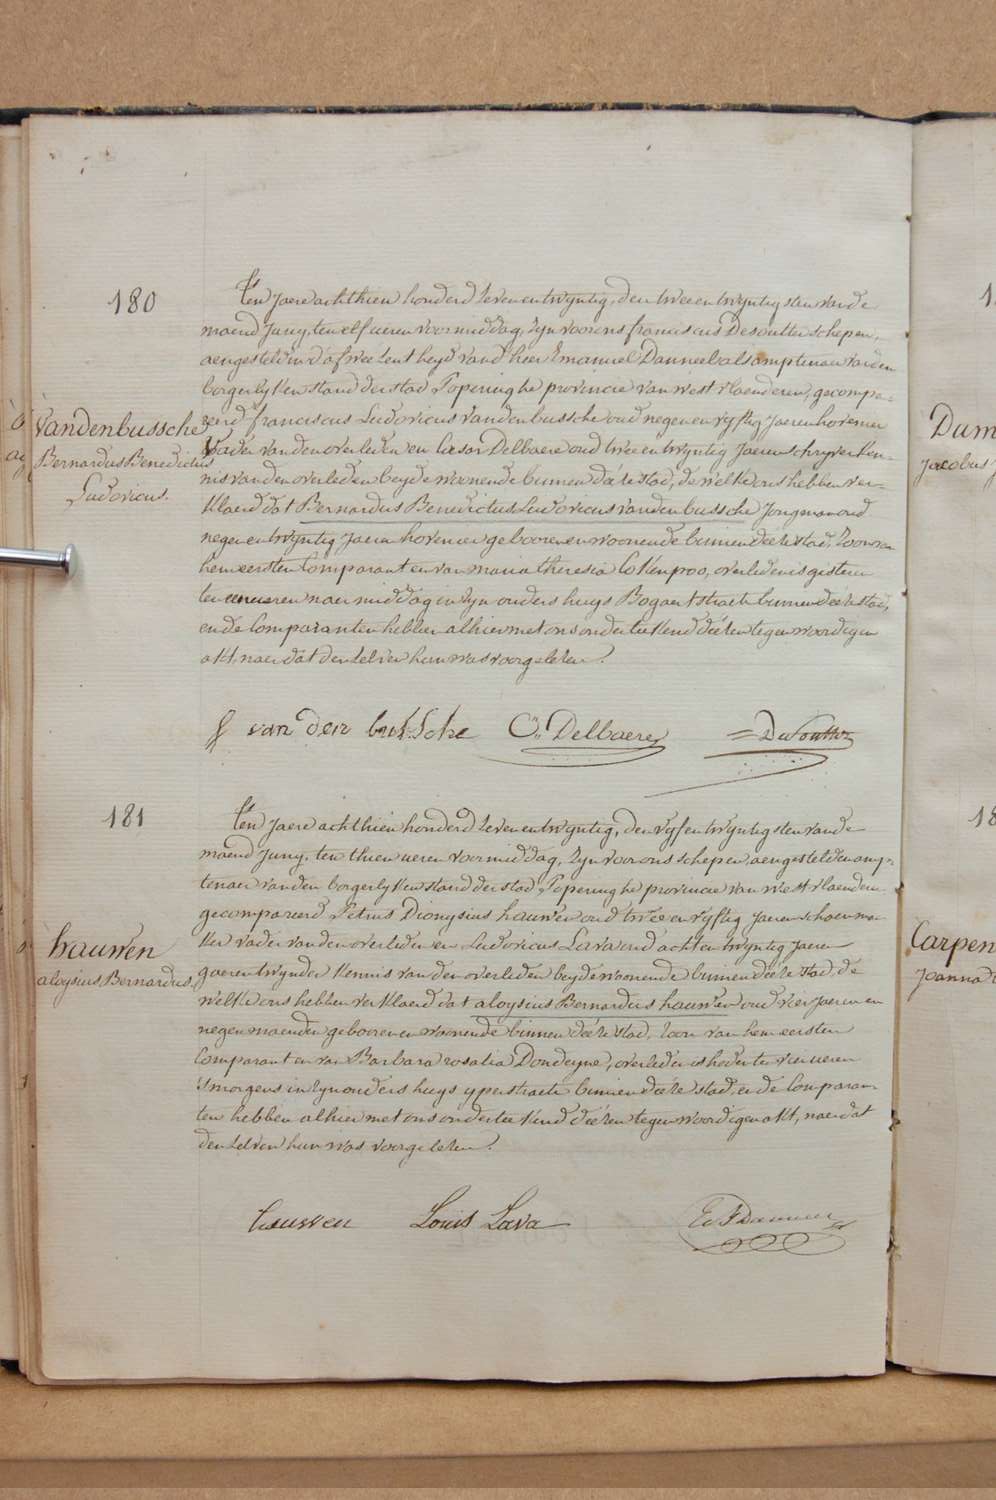 180
Vandenbussche
Bernardus Benedictus
Ludovicus.
Ten Jaere achthien honderd zeven entwyntig, den tweeentwyntigsten van de
maend Juny, ten elf ueren voormiddag, zyn voor ons franciscus Desoutter schepen,
aengesteld in d'afweezentheyd van d'heer Emanuel Danneel als amptenaer van den
borgerlyken stand der stad Poperinghe provincie van westvlaenderen, gecompa-
reerd franciscus Ludovicus vandenbussche oud negen en vyftig Jaeren hovenier
vader van den overleden en Cæsar Delbaere oud tweeentwyntig Jaeren schryver ken-
nis van den overleden beyde woonende binnen deéze stad, de welke ons hebben ver-
klaerd dat Bernardus Benedictus Ludovicus vandenbussche Jongman oud
negenentwyntig Jaeren hovenier gebooren en woonende binnen deéze stad, Zoon van
hem eersten Comparant en van maria theresia Cokenpoo, overleden is gisteren
ten ueren naermiddag in zyn ouders huys Bogaertstraete binnen deéze stad,
en de Comparanten hebben alhier met ons onderteekend deézen tegenwoordigen
akt, naer dat den zelven hun was voorgelezen.
f van den bussche C. Delbaere Desoutter
181
hauwen
aloysius Bernardus
Ten Jaere achthien honderd zeven entwyntig, den vyfentwyntigsten van de
maend Juny, ten thien ueren voormiddag, zyn voor ons schepen, aengestelden amp-
tenaer van den borgerlyken stand der stad Poperinghe provincie van westvlaenderen
gecompareerd Petrus Dionysius hauwen oud twee en vyftig Jaeren schoenma-
ker vader van den overleden en Ludovicus Lava oud achtentwyntig Jaeren
gaerentwynder kennis van den overleden beyde woonende binnen deéze stad, de
welke ons hebben verklaerd dat aloysius Bernardus hauwen oud vier Jaeren en
negen maenden gebooren en woonende binnen deéze stad, Zoon van hem eersten
Comparant en van Barbara rosalia Dondeyne, overleden is heden ten vier ueren
smorgens in zyn ouders huys yperstraete binnen deéze stad, en de Comparan-
ten hebben alhier met ons onderteekend deézen tegenwoordigen akt, naer dat
den zelven hun was voorgelezen.
hauwen Louis Lava
Dum
Jacobus
18
Carpen
Joanna